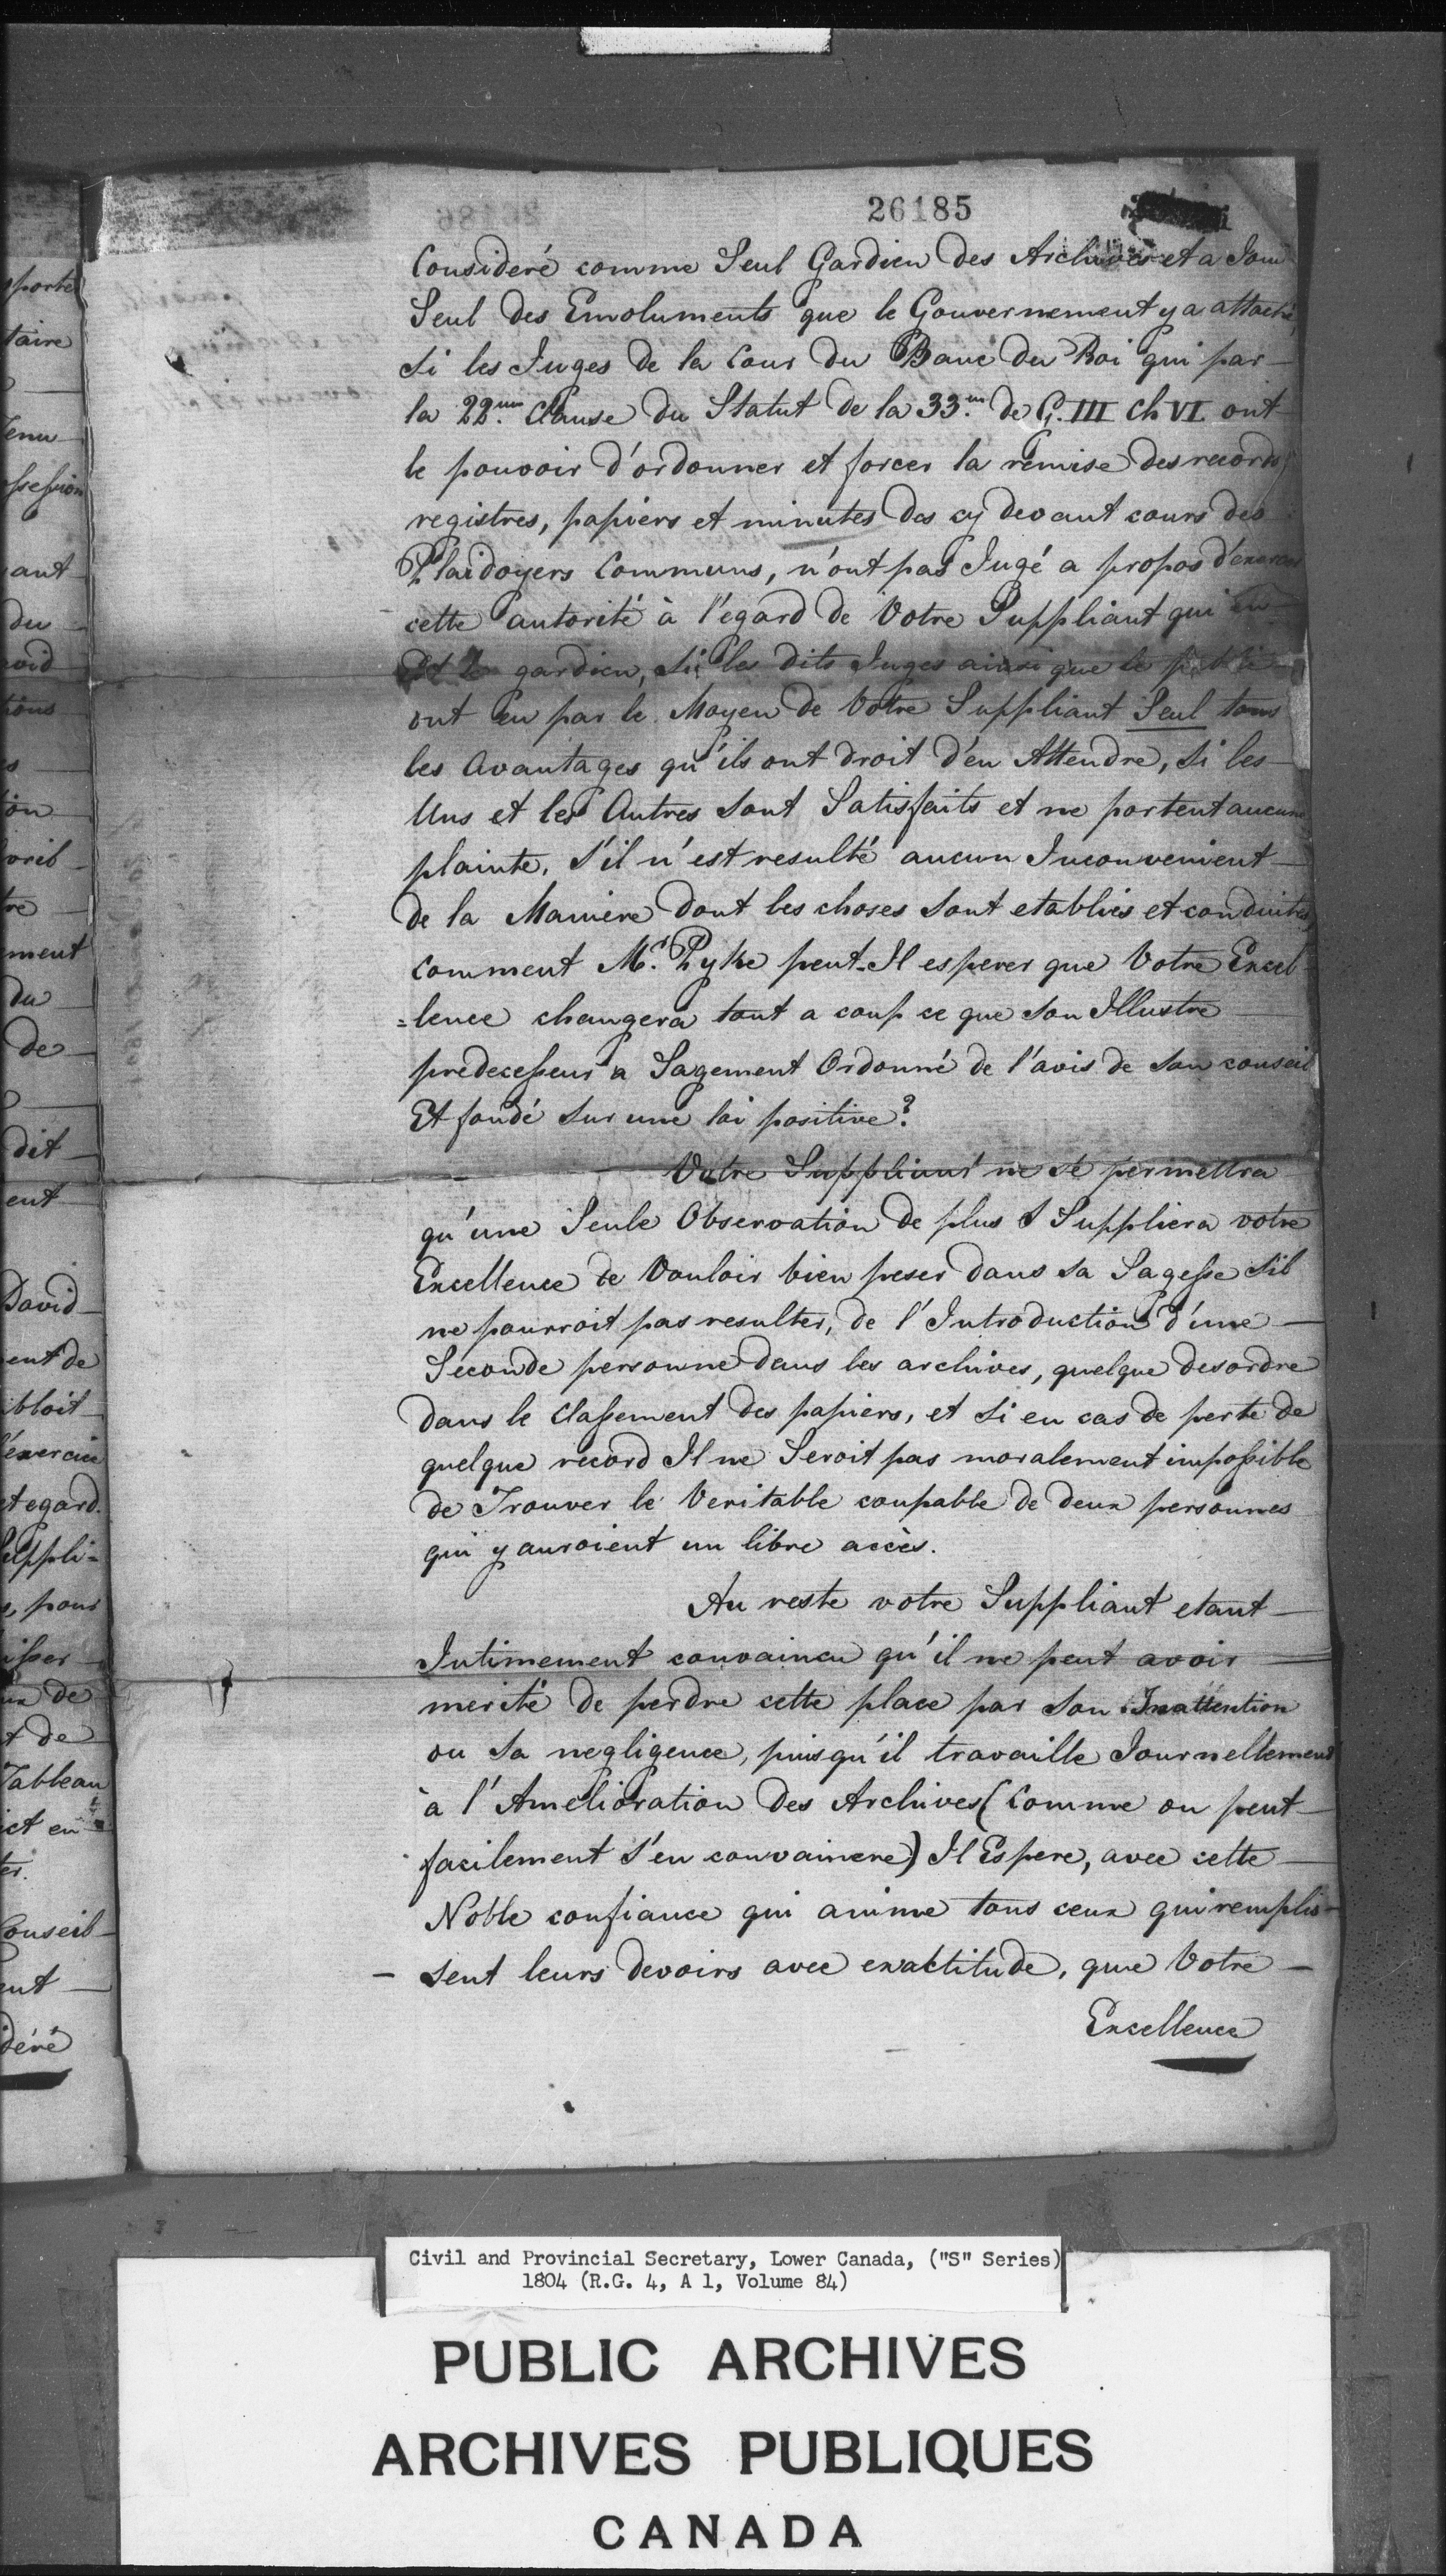 26185
Consideré comme Seul Gardien des Archives et a Joui
Seul des Emoluments que le Gouvernement y a attaché,
Si les Juges de la Cour du Banc du Roi qui par
la 22.me Clause du Statut de la 33.me de G. III Ch VI. ont
le pouvoir d'ordonner et forcer la remise des records,
registres, papiers et minutes des cy devant cours des
Plaidoyers Communs, n'ont pas Jugé a propos d'exercer
cette autorité à l'egard de Votre Suppliant qui en
est le gardien, Si les dits Juges ainsi que le public
ont eu par le Moyen de Votre Suppliant Seul tous
les Avantages qu'ils ont droit d'en Attendre, Si les
Uns et les Autres Sont Satisfaits et ne portent aucune
plainte, S'il n'est resulté aucun Inconvenient
de la Maniere dont les choses Sont etablies et conduites,
comment Mr. Pyke peut-Il esperer que Votre Excel
=lence changera tout a coup ce que Son Illustre
predecesseur a Sagement Ordonné de l'avis de Son conseil
Et fondé Sur une loi positive?
Votre Suppliant ne Se permettra
qu'une Seule Observation de plus & Suppliera votre
Excellence de Vouloir bien peser dans Sa Sagesse S'il
ne pourroit pas resulter, de l'Introduction d'une
Seconde personne dans les archives, quelque desordre
dans le Classement des papiers, et Si en cas de perte de
quelque record Il ne Seroit pas moralement impossible
de Trouver le Veritable coupable de deux personnes
qui y auroient un libre accès.
Au reste votre Suppliant etant
Intimement convaincu qu'il ne peut avoir
merité de perdre cette place par Son Inattention
ou Sa negligence, puisqu'il travaille Journellement
à l'Amelioration des Archives (Comme on peut
facilement S'en convaincre) Il Espere, avec cette
Noble confiance qui anime tous ceux qui remplis-
- Sent leurs devoirs avec exactitude, que Votre
Excellence
porté
taire
tenu
ssession
ant
du
ment
du
de
dit
ent
David
ent de
ibloit
l'exercice
et egard.
Suppli=
, pour
isser
de
Tableau
Conseil
ent
déré
Civil and Provincial Secretary, Lower Canada, ("S" Series)
1804 (R.G. 4, A 1, Volume 84)
PUBLIC ARCHIVES
ARCHIVES PUBLIQUES
CANADA